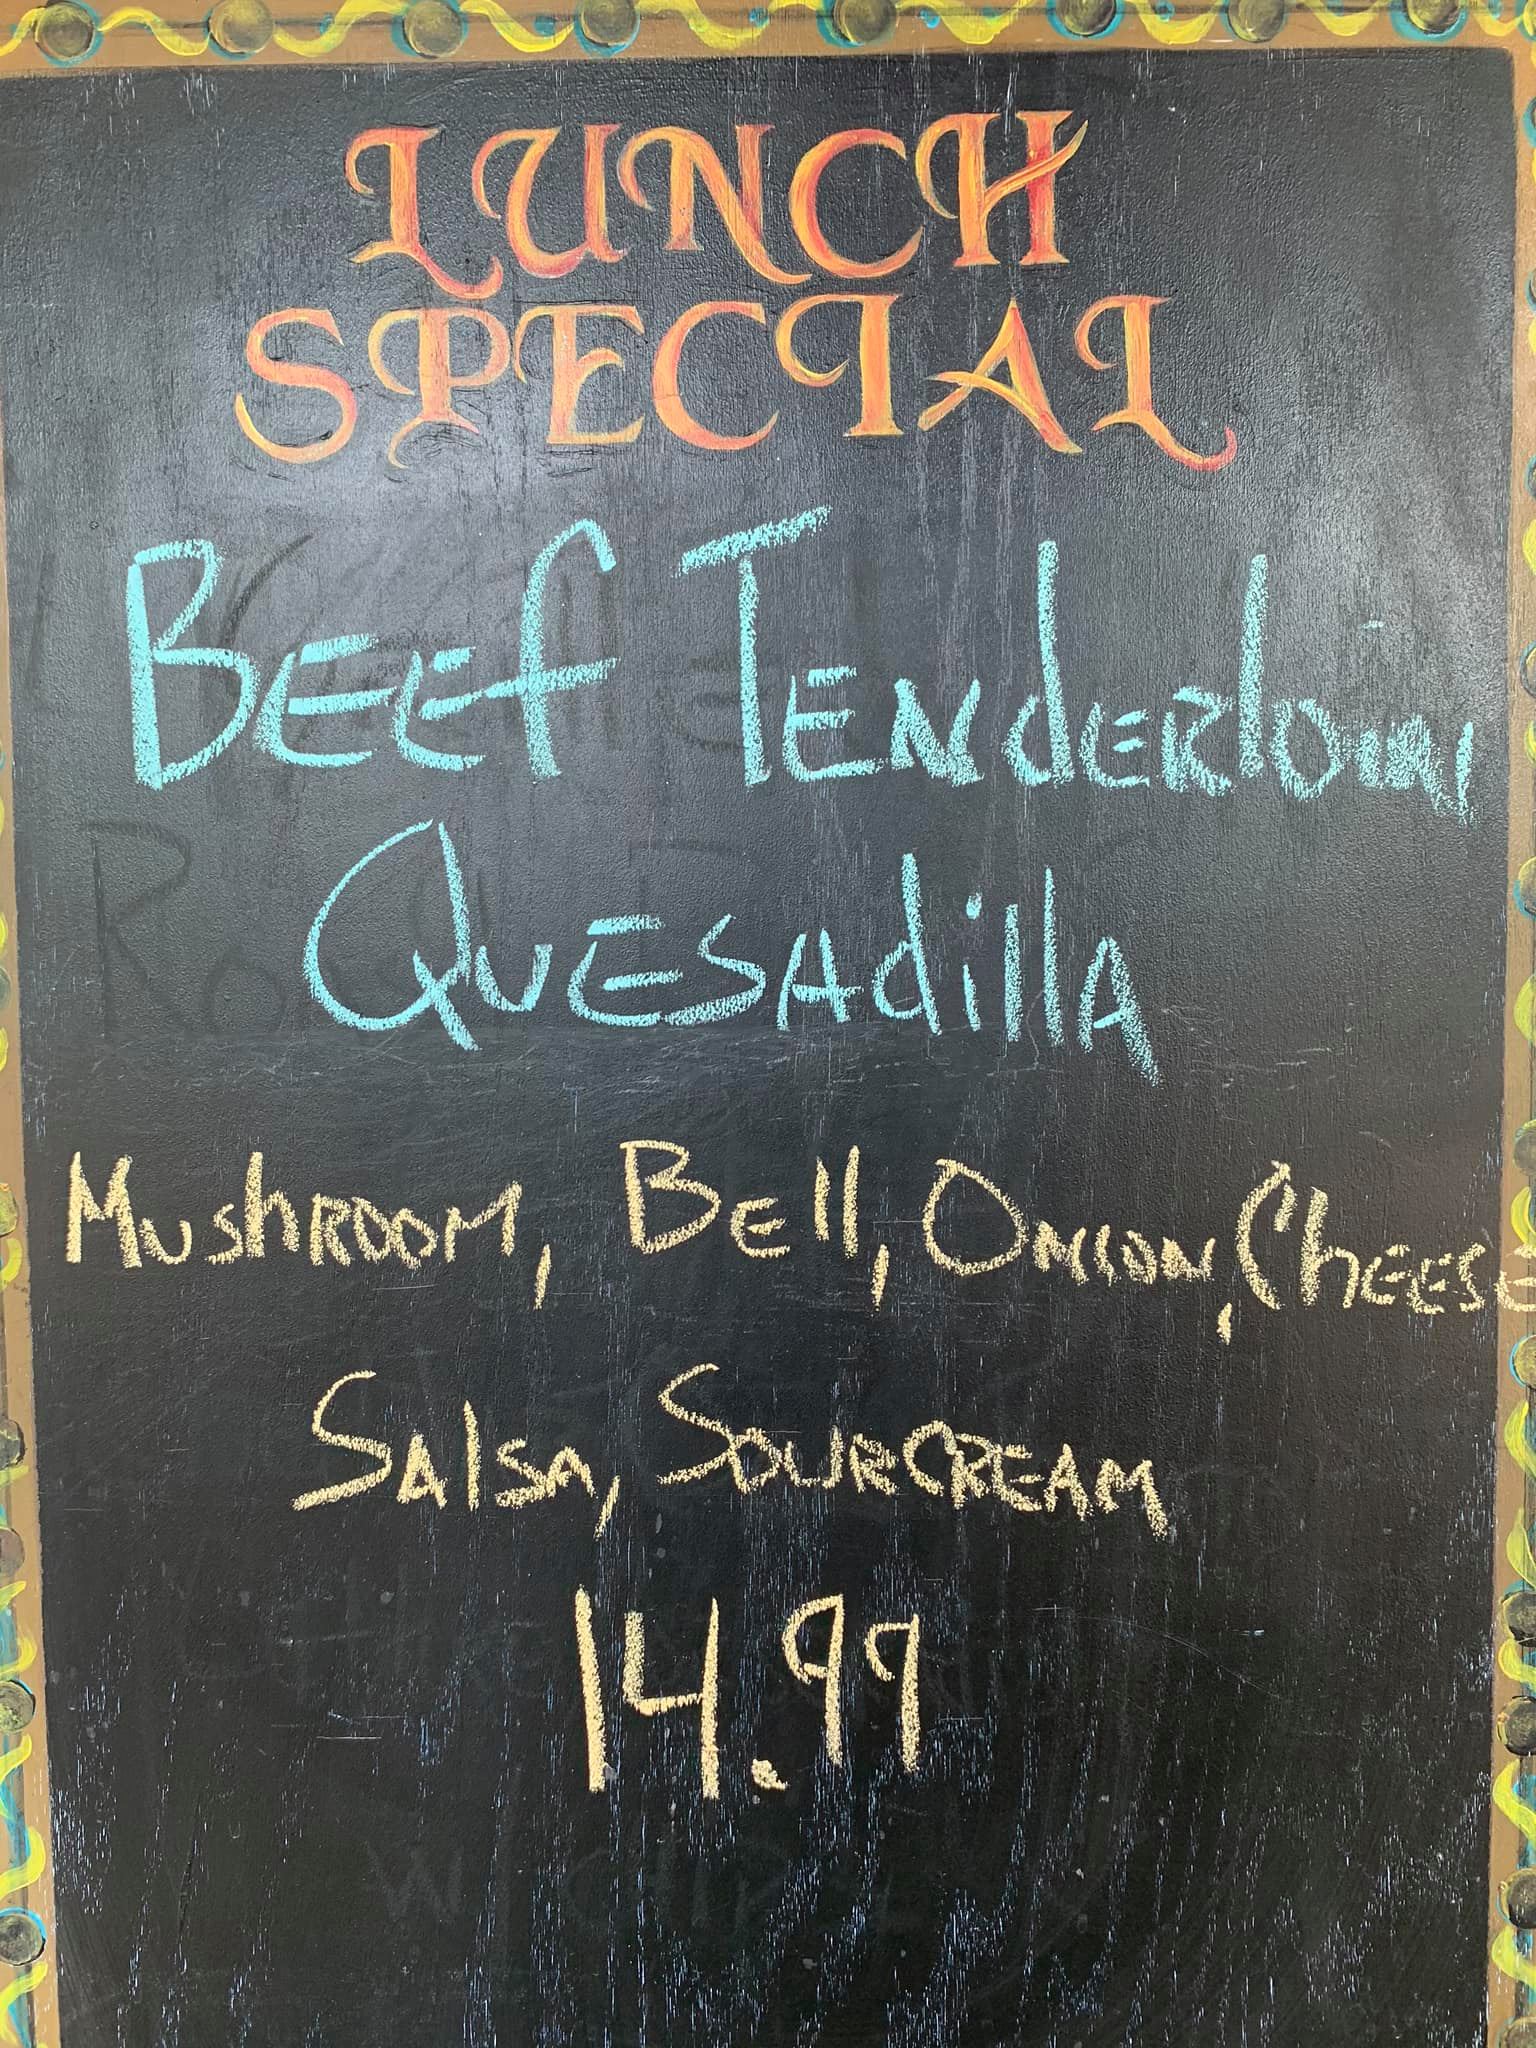 LUNCH
SPECIAL
BEEf TENdERloiN
QUESAdillA
MUShROOM, BEll, ONION, ChEESE
SAlSA, SOUR CREAM
14.99